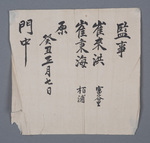 監事
崔來洪 密菴
崔東海 招浦
原
癸丑三月七日
門中